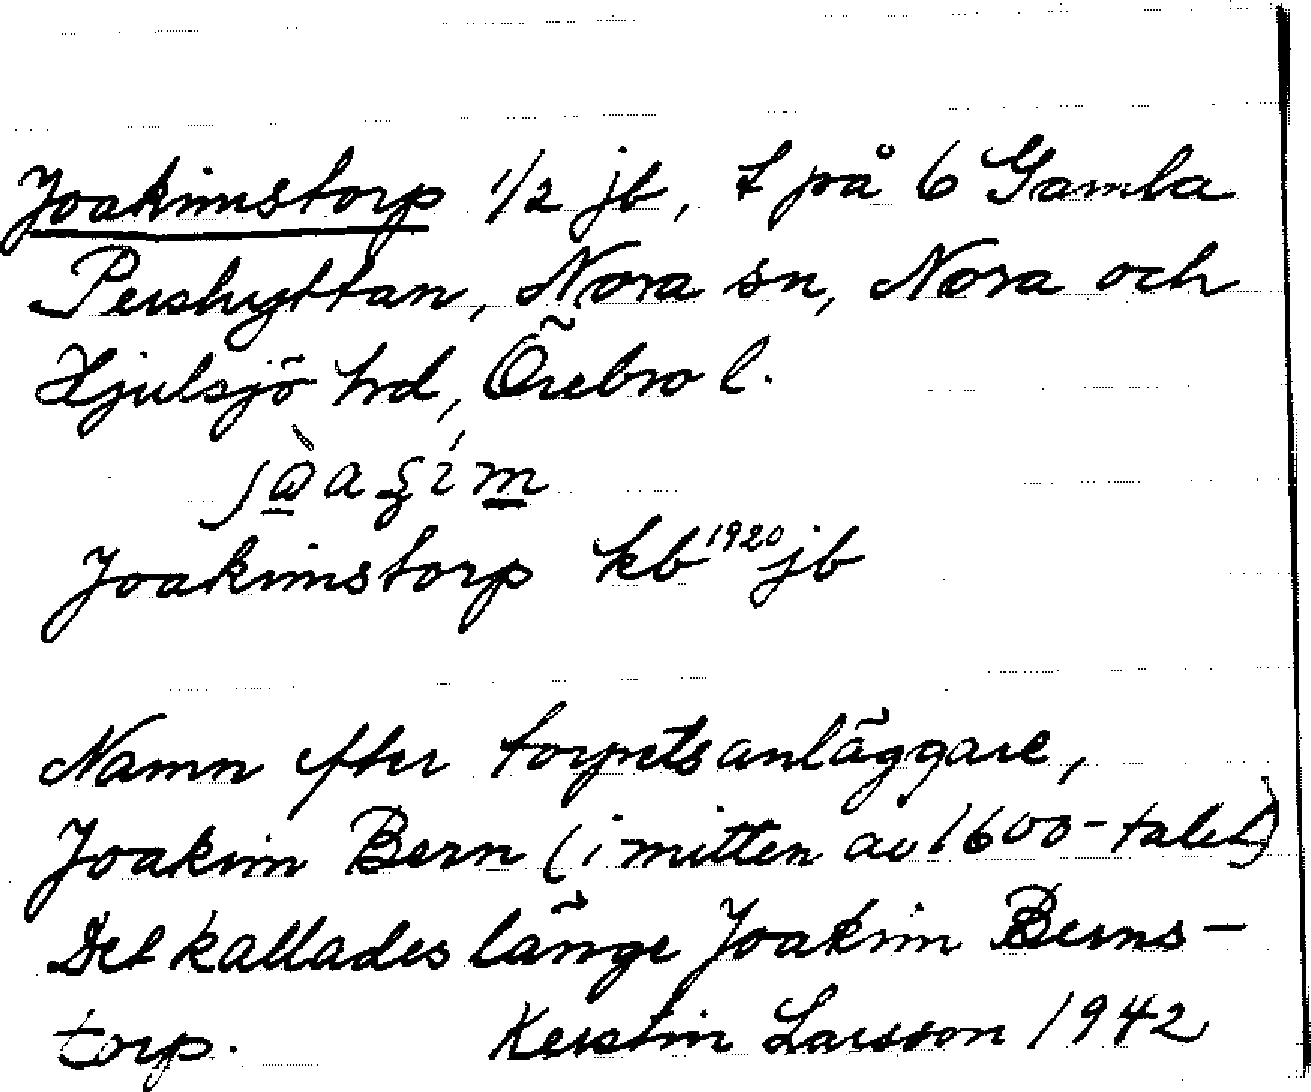 Joakimstorp 1/2 jb, t på 6 Gamla
Pershyttan, Nora sn, Nora och
Hjulsjö hrd, Örebro l.
Joakimstorp kb 1920 jb
Namn efter torpets anläggare,
Joakim Bern (i mitten av 1600-talet)
Det kallades länge Joakim Berns-
torp. Kerstin Larsson 1942